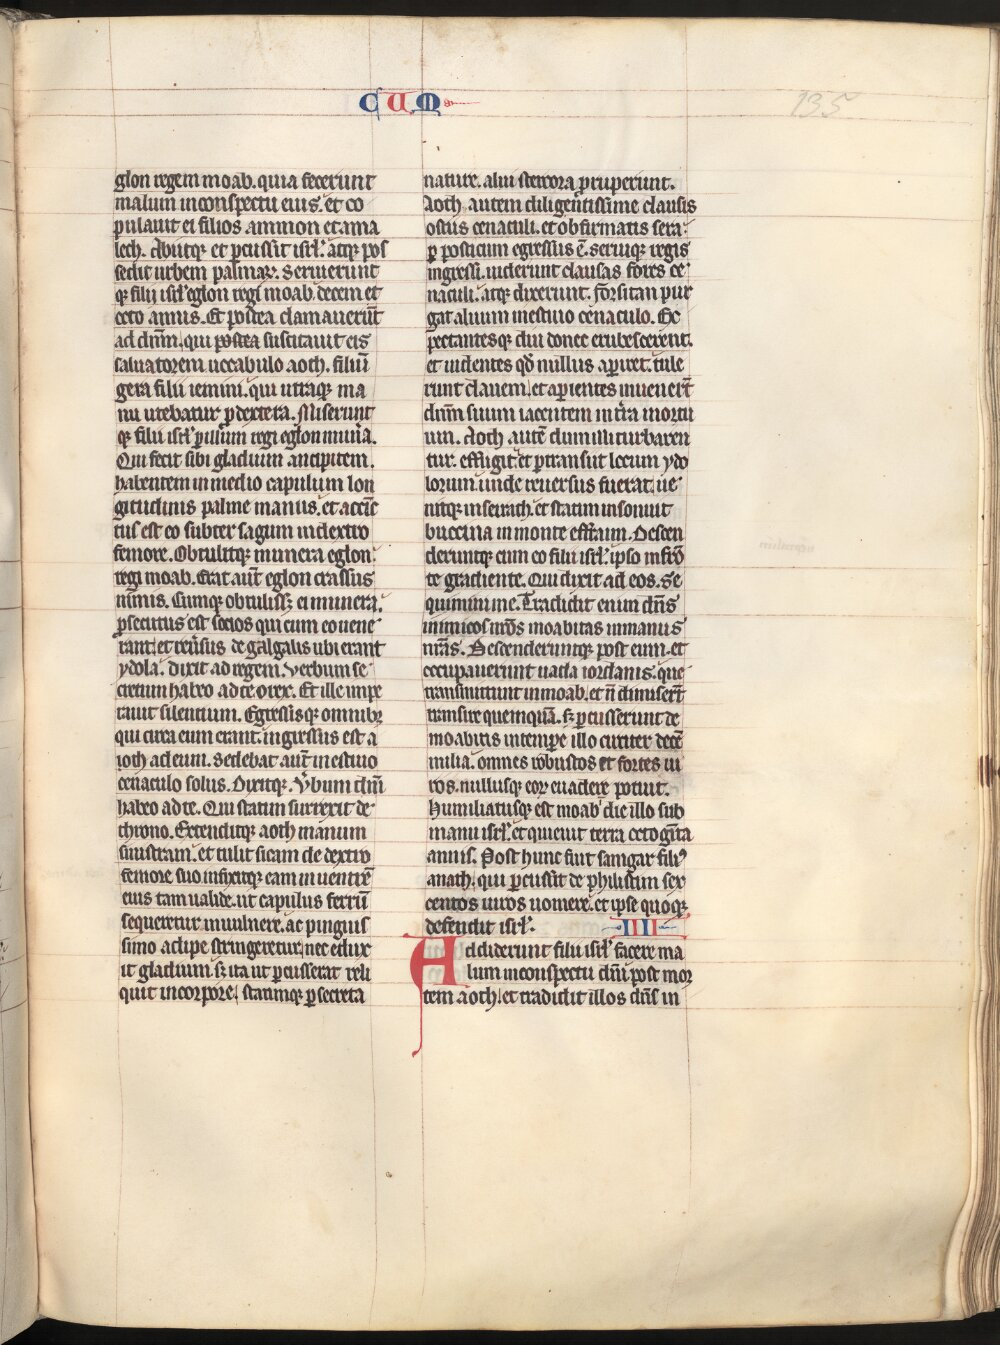 CUM
135
glon regem moab. quia fecerunt
malum in conspectu eius. et co
pulauit ei filios ammon et ama
lech. Abiitqꝫ et ꝑcussit isrl̓. atqꝫ pos
sedit urbem palmaꝝ. Seruierunt
qꝫ filii isrl̓ eglon regi moab. decem et
octo annis. Et postea clamauerūt
ad dn̄m. qui postea suscitauit eis
saluatorem uocabulo aoth. filiū
gera filii iemini. qui utraqꝫ ma
nu utebatur ꝑ dextera. Miserunt
qꝫ filii isrl̓ ꝑ illum regi eglon munᷓa.
Qui fecit sibi gladium ancipitem.
habentem in medio capulum lon
gitudinis palme manus. et accīc
tus est eo subter sagum in dextro
femore. Obtulitqꝫ munera eglon
regi moab. Erat aut̄ eglon crassus
nimis. Cumqꝫ obtulissꝫ ei munera.
ꝓsecutus est socios qui cum eo uene
rant. et reu̓sus de galgalis ubi erant
ydola. dixit ad regem. Verbum se
cretum habeo ad te o rex. Et ille impe
rauit silentium. Egressisqꝫ omnibꝫ
qui circa eum erant. ingressus est a
ioth ad eum. Sedebat aut̄ in estiuo
cenaculo solus. Dixitqꝫ. Vb̓um dn̄i
habeo ad te. Qui statim surrexit de
throno. Extenditqꝫ aoth manum
sinistram. et tulit sicam de dextro
femore suo infixitqꝫ eam in uentrē
eius tam ualide. ut capulus ferrū
sequeretur in uulnere. ac pinguis
simo adipe stringeretur. nec edux
it gladium. sꝫ ita ut ꝑcusserat reli
quit in corpore. statimqꝫ ꝑ secreta
nature. alui stercora ꝓruperunt.
Aoth. autem diligentissime clausis
ostiis cenaculi. et obfirmatis sera.
ꝑ posticum egressus ē. Seruiqꝫ regis
ingressi. uiderunt clausas fores ce
naculi. atqꝫ dixerunt. Forsitan pur
gat aluum in estiuo cenaculo. Ex
pectantesqꝫ diu donec erubescerent.
et uidentes qd̓ nullus aperiret. tule
runt clauem. et aperientes inuener̄t
dn̄m suum iacentem in t̓ra mortu
um. Aoth autē dum illi turbaren
tur. effugit. et ꝑtransiit locum ydo
lorum. unde reuersus fuerat. ue
nitqꝫ in seirath. et statim insonuit
buccina in monte effraim. Descen
deruntqꝫ cum eo filii isrl̓. ipso in frō
te gradiente. Qui dixit ad eos. Se
quimini me. Tradidit enim dn̄s
inimicos nr̄os moabitas in manus
nr̄as. Descenderuntqꝫ post eum. et
occupauerunt uada iordanis. que
transmittunt in moab. et n̄ dimiser̄t
transire quemquā. sꝫ ꝑcusserunt de
moabitis in tempore illo circiter decē
milia. omnes robustos et fortes ui
ros. nullusqꝫ eoꝝ euadere potuit.
Humiliatusqꝫ est moab die illo sub
manu isrl̓. et quieuit terra octogīta
annis. Post hunc fuit samgar filiꝰ
anath. qui ꝑcussit de philistim sex
centos uiros uomere. et ipse quoqꝫ
defendit isrl̓. IIII
Addiderunt filii isrl̓ facere ma
lum in conspectu dn̄i post mor
tem aoth. et tradidit illos dn̄s in